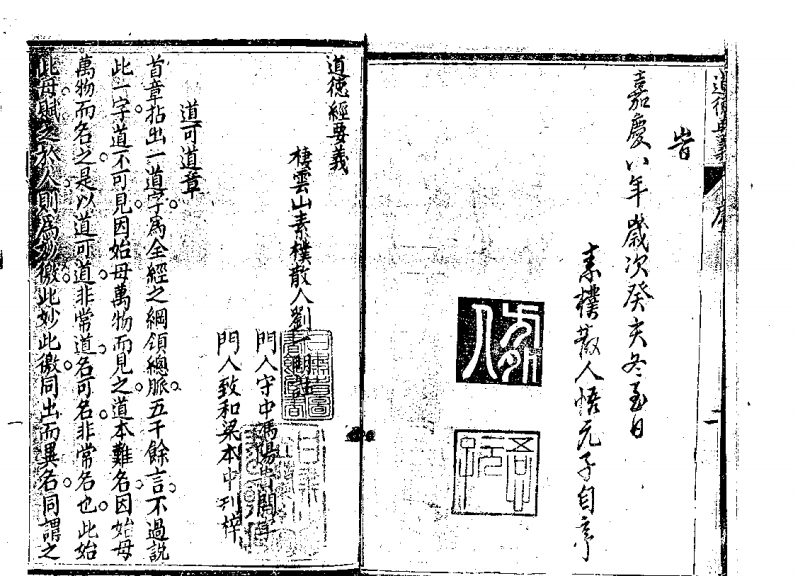 道德要義 序
旹
嘉慶八年歲次癸亥冬至日
素樸散人悟元子自序
道德經要義
棲雲山素樸散人劉一明註
門人守中馮陽
門人致和梁本中刊梓
道可道章
首章拈出一道字為全經之綱領總脈五千餘言不過說
此一字道不可見因始母萬物而見之道本難名因始母
萬物而名之是以道可道非常道名可名非常名也此始
此母賦之於人則為妙徼此妙此徼同出而異名同謂之